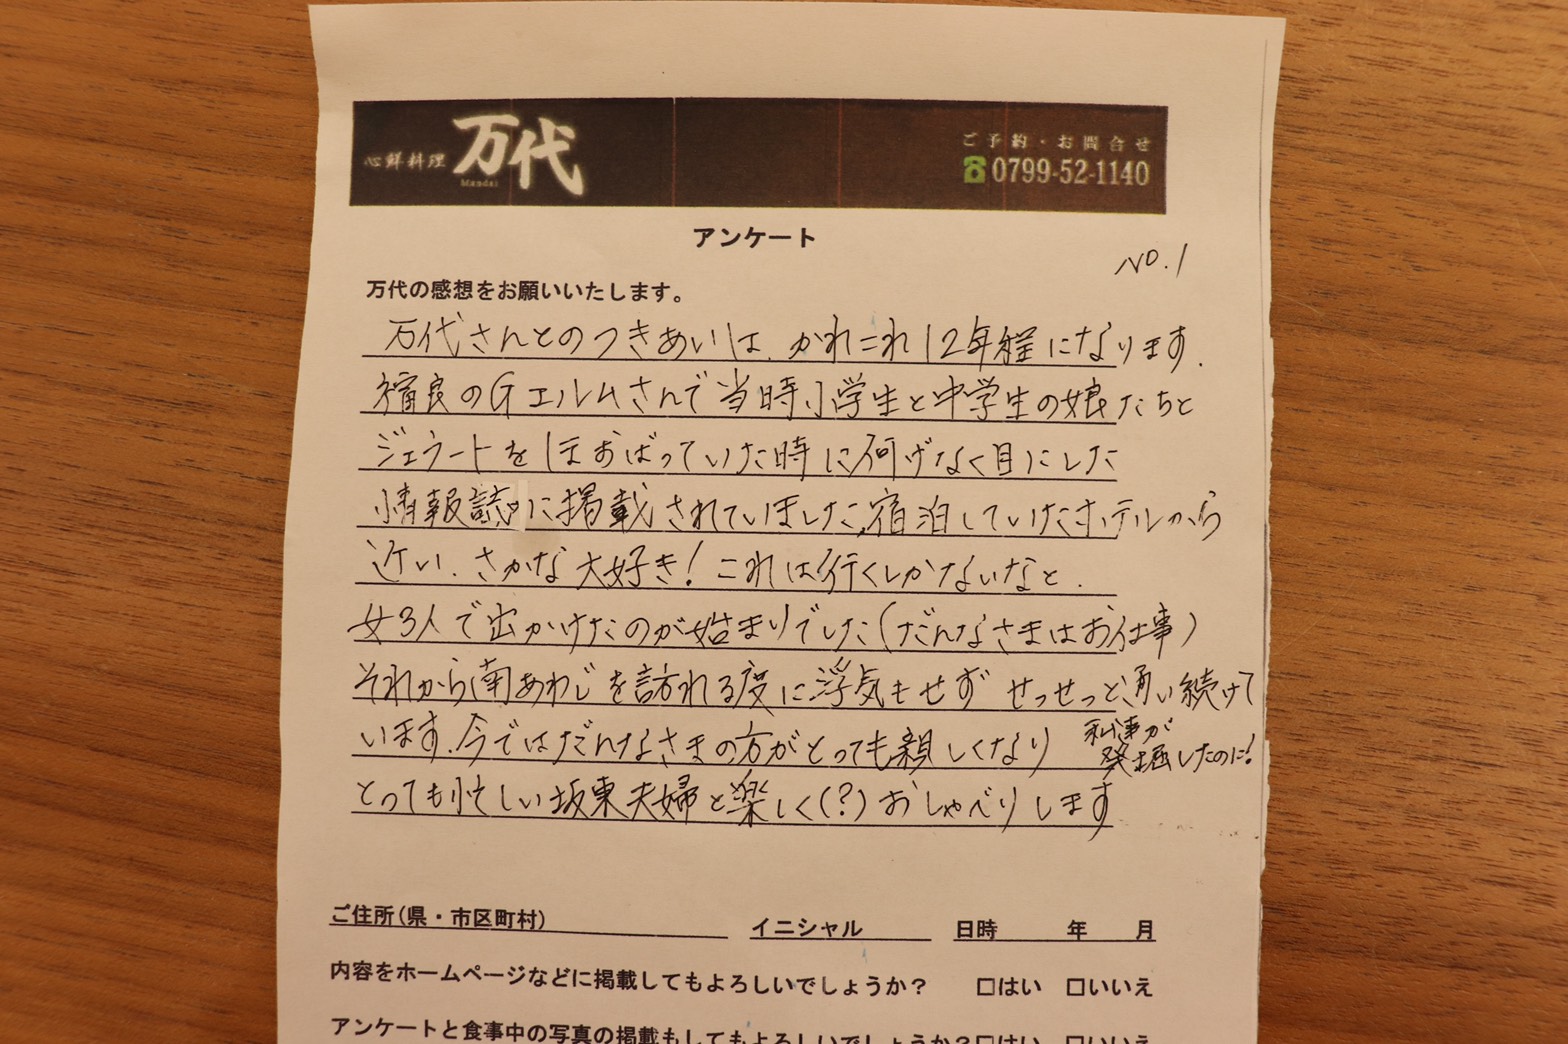 心鮮料理 万代
Mandai
ご予約・お問合せ
0799-52-1140
アンケート
NO.1
万代の感想をお願いいたします。
万代さんとのつきあいは、かれこれ12年程になります.
福良のGエルムさんで当時小学生と中学生の娘たちと
ジェラートをほおばっていた時に何げなく目にした
情報誌に掲載されていました.宿泊していたホテルから
近い、さかな大好き!これは行くしかないなと.
女3人で出かけたのが始まりでした(だんなさまはお仕事)
それから南あわじを訪れる度に浮気もせずせっせっと通い続けて
います.今ではだんなさまの方がとっても親しくなり 私事が
発掘したのに!
とっても忙しい坂東夫婦と楽しく(?)おしゃべりします
ご住所(県・市区町村) イニシャル 日時 年 月
内容をホームページなどに掲載してもよろしいでしょうか? □はい □いいえ
アンケートと食事中の写真の掲載もしてもよろしいでしょうか?□はい □いいえ